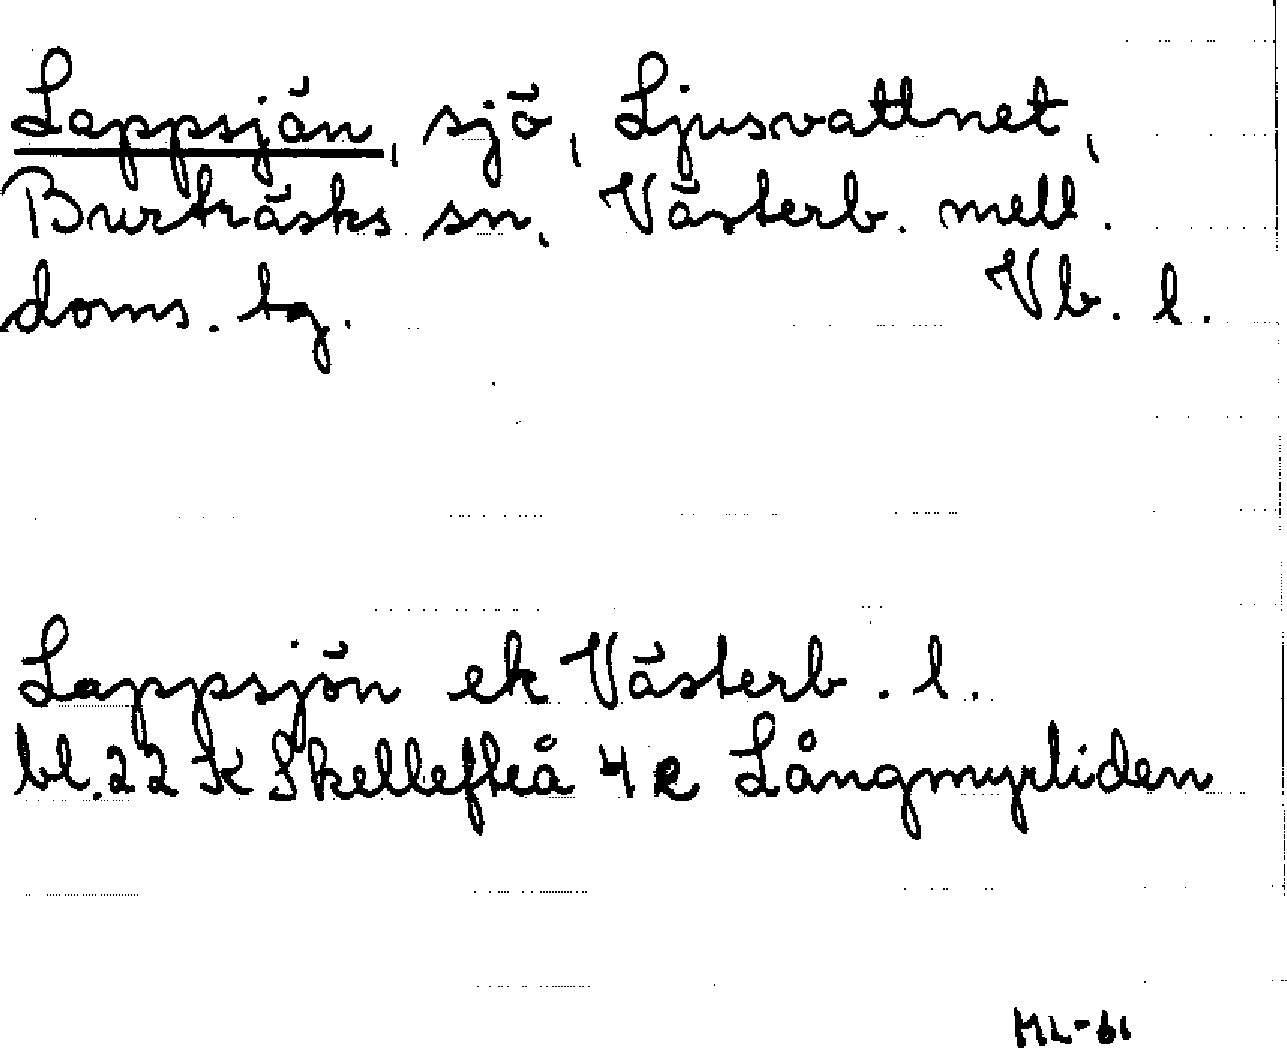 Lappsjön, sjö, Ljusvattnet,
Burträsks sn, Västerb. mell.
doms. tg. Vb. l.
Lappsjön ek Västerb. l.
bl. 22 K Skellefteå 4 e Långmyrliden
ML-61